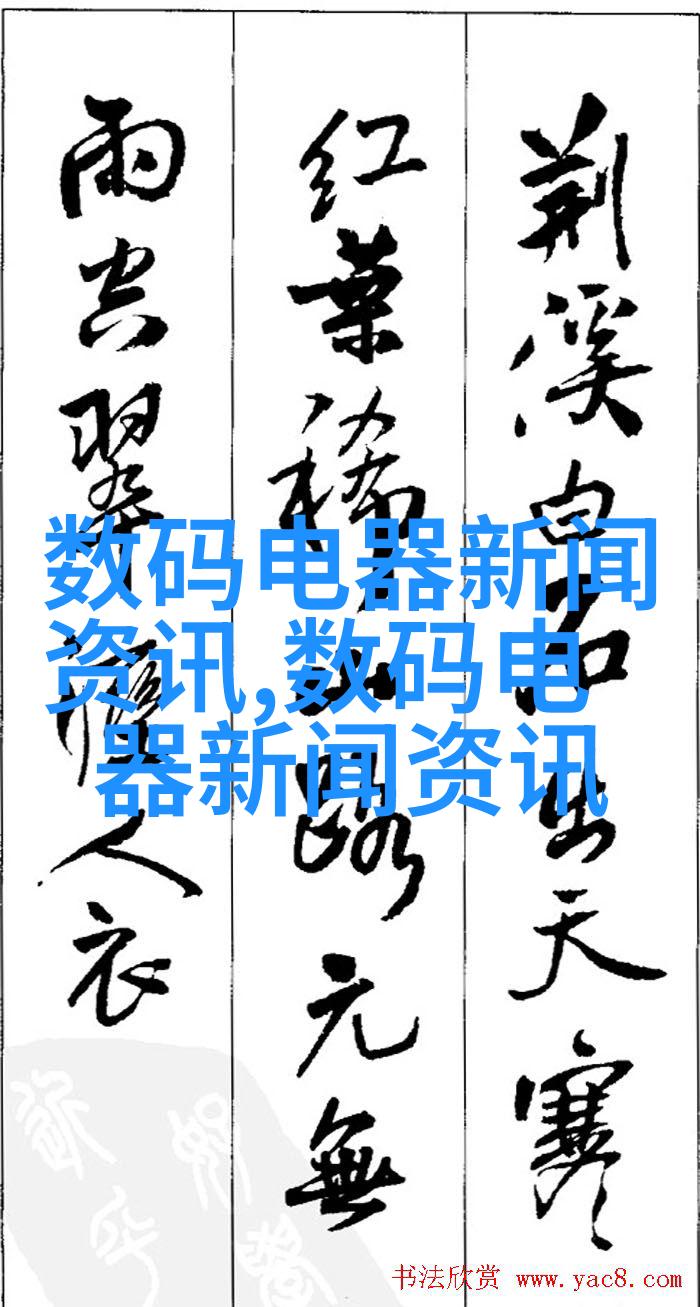 荆溪白石出天寒
红葉稀山路元無
雨空翠濕人衣
数码电器新闻
资讯,数码电
器新闻资讯
书法欣赏 www.yac8.com